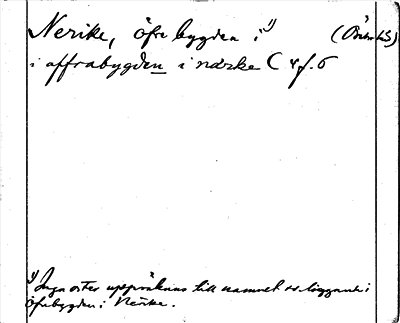 Nerike, öfre bygden i 1) (Örebro)
i offrabygden i närke C 4 f. 6
1) Inga orter uppräknas till namnet ss liggande i
öfrebygden i Nerike.